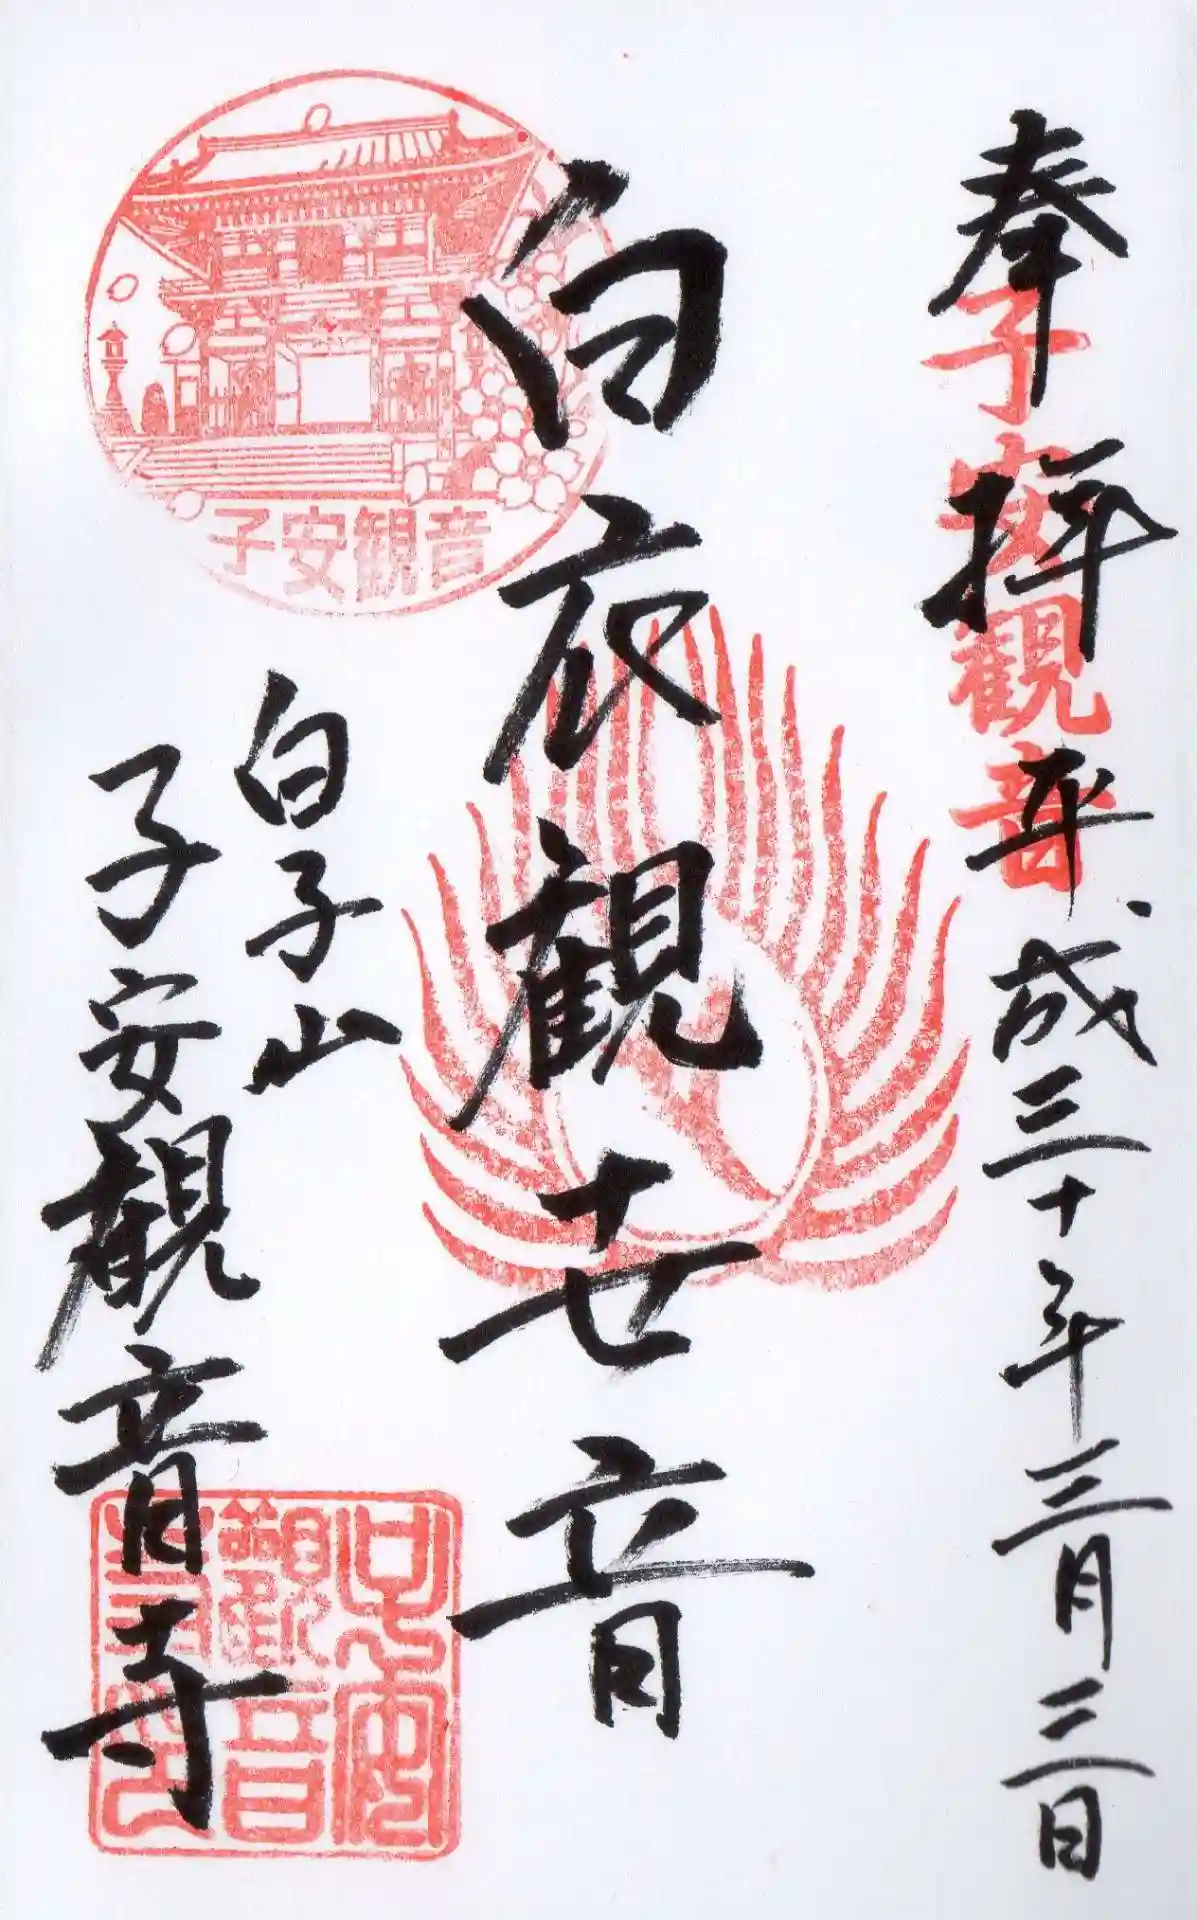 奉拝 平成三十年三月三日
子安観音
白衣観世音
子安観音
白子山
子安観音寺
子安
観音
寺印